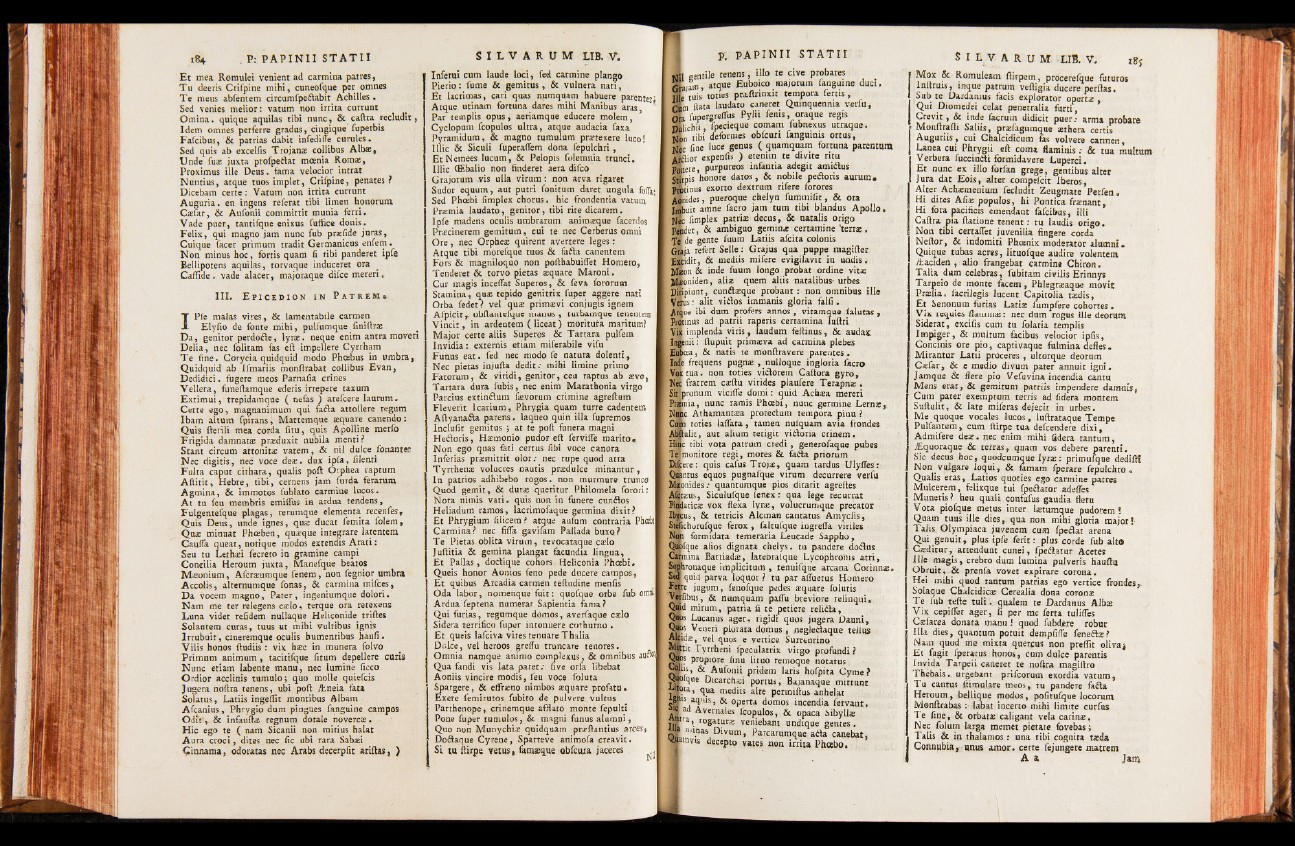 184 P. PAPINII STATII
Et mea Romulei venient ad carmina patres,
Tu deeris Criſpine mihi, cuneoſque per omnes
Te meus abſentem circumſpectabit Achilles.
Sed venies melior: vatum non irrita currunt
Omina. quique aquilas tibi nunc, & caſtra recludit,
Idem omnes perferre gradus, cingique ſuperbis
Faſcibus, & patrias dabit inſediſſe curules.
Sed quis ab excelſis Trojanæ collibus Albæ,
Unde ſuæ juxta proſpectat mœnia Romæ,
Proximus ille Deus. fama velocior intrat
Nuntius, atque tuos implet, Criſpine, penates?
Dicebam certe: Vatum non irrita currunt
Auguria. en ingens referat tibi limen honorum
Cæſar, & Auſonii committit munia ferri.
Vade puer, tantiſque enixus ſuffice donis.
Felix, qui magno jam nunc ſub præſide juras,
Cuique ſacer primum tradit Germanicus enſem.
Non minus hoc, fortis quam ſi tibi panderet ipſe
Bellipotens aquilas, torvaque induceret ora
Caſſide. vade alacer, majoraque diſce mereri.
III. EPICEDION IN PATREM.
IPſe malas vires, & lamentabile carmen
Elyſio de fonte mihi, pulſumque ſiniſtræ
Da, genitor perdocte, lyræ. neque enim antra moveri
Delia, nec ſolitam fas eſt impellere Cyrrham
Te ſine. Corycia quidquid modo Phœbus in umbra,
Quidquid ab Iſmariis monſtrabat collibus Evan,
Dedidici. fugere meos Parnaſia crines
Vellera, funeſtamque ederis irrepere taxum
Extimui, trepidamque (nefas) areſcere laurum.
Certe ego, magnanimum qui facta attollere regum
Ibam altum ſpirans, Martemque æquare canendo:
Quis ſterili mea corda ſitu, quis Apolline merſo
Frigida damnatæ præduxit nubila menti?
Stant circum attonitæ vatem, & nil dulce ſonantes
Nec digitis, nec voce deæ. dux ipſa, ſilenti
Fulta caput cithara, qualis poſt Orphea raptum
Aſtitit, Hebre, tibi, cernens jam ſurda ferarum
Agmina, & immotos ſublato carmine lucos.
At tu ſeu membris emiſſus in ardua tendens,
Fulgenteſque plagas, rerumque elementa recenſes,
Quis Deus, unde ignes, quæ ducat ſemita ſolem,
Quæ minuat Phœben, quæque integrare latentem
Cauſſa queat, notique modos extendis Arati:
Seu tu Lethæi ſecreto in gramine campi
Concilia Heroum juxta, Maneſque beatos
Mæonium, Aſcræumque ſenem, non ſegnior umbra
Accolis, alternumque ſonas, & carmina miſces,
Da vocem magno, Pater, ingeniumque dolori.
Nam me ter relegens cælo, terque ora retexens
Luna videt reſidem nullaque Heliconide triſtes
Solantem curas, tuus ut mihi vultibus ignis
Irrubuit, cineremque oculis humentibus hauſi.
Vilis honos ſtudiis: vix hæc in munera ſolvo
Primum animum, tacitiſque ſitum depellere curis
Nunc etiam labente manu, nec lumine ſicco
Ordior acclinis tumulo; quo molle quieſcis
Jugera noſtra tenens, ubi poſt Æneia fata
Solatus, Latiis ingeſſit montibus Albam
Aſcanius, Phrygio dum pingues ſanguine campos
Odit, & infauſtæ regnum dotale novercæ.
Hic ego te (nam Sicanii non mitius halat
Aura croci, dites nec ſic ubi rara Sabæi
Cinnama, odoratas nec Arabs decerpſit ariſtas,)
SILVARUM LIB. V.
Inſerui cum laude loci, ſed carmine plango
Pierio: ſume & gemitus, & vulnera nati,
Et lacrimas, cari quas numquam habuere parentes;
Atque utinam fortuna dares mihi Manibus aras,
Par templis opus, aeriamque educere molem,
Cyclopum ſcopulos ultra, atque audacia ſaxa
Pyramidum, & magno tumulum prætexere luco!
Illic & Siculi ſuperaſſem dona ſepulchri,
Et Nemees lucum, & Pelopis ſolemnia trunci.
Illic Œbalio non finderet aera diſco
Grajorum vis ulla virum: non arva rigaret
Sudor equum, aut putri ſonitum daret ungula foſſa:
Sed Phœbi ſimplex chorus. hic frondentia vatum
Præmia laudato, genitor, tibi rite dicarem.
Ipſe madens oculis umbrarum animæque ſacerdos
Præcinerem gemitum, cui te nec Cerberus omni
Ore, nec Orpheæ quirent avertere leges:
Atque tibi moreſque tuos & facta canentem
Fors & magniloquo non poſthabuiſſet Homero,
Tenderet & torvo pietas æquare Maroni.
Cur magis inceſſat Superos, & ſeva ſororum
Stamina, quæ tepido genitrix ſuper aggere nati
Orba ſedet? vel quæ primævi conjugis ignem
Aſpicit, obſtanteſque manus, turbamque tenentem
Vincit, in ardentem (liceat) moritura maritum?
Major certe aliis Superos & Tartara pulſem
Invidia: externis etiam miſerabile viſu
Funus eat. ſed nec modo ſe natura dolenti,
Nec pietas injuſta dedit. mihi limine primo
Fatorum, & viridi, genitor, ceu raptus ab ævo,
Tartara dura ſubis, nec enim Marathonia virgo
Parcius extinctum ſævorum crimine agreſtum
Fleverit Icarium, Phrygia quam turre cadentem
Aſtyanacta parens. laqueo quin illa ſupremos
Incluſit gemitus; at te poſt funera magni
Hectoris, Hæmonio pudor eſt ſerviſſe marito.
Non ego quas fati certus ſibi voce canora
Inferias præmittit olor: nec rupe quod atra
Tyrrhenæ volucres nautis prædulce minantur,
In patrios adhibebo rogos. non murmure trunco
Quod gemit, & duræ queritur Philomela ſorori:
Nota nimis vati. quis non in funere cunctos
Heliadum ramos, lacrimoſaque germina dixit?
Et Phrygium ſilicem? atque auſum contraria Phœbo
Carmina? nec fiſſa gaviſam Pallada buxo?
Te Pietas oblita virum, revocataque cælo
Juſtitia & gemina plangat facundia lingua,
Et Pallas, doctique cohors Heliconia Phœbi.
Queis honor Aonios ſeno pede ducere campos,
Et quibus Arcadia carmen teſtudine menſis
Oda labor, nomenque fuit: quoſque orbe ſub omni
Ardua ſeptena numerat Sapientia fama?
Qui furias, regumque domos, averſaque cælo
Sidera terrifico ſuper intonuere cothurno.
Et queis laſciva vires tenuare Thalia
Dulce, vel heroos greſſu truncare tenores.
Omnia namque animo complexus, & omnibus auctor
Qua fandi vis lata paret: ſive orla libebat
Aoniis vincire modis, ſeu voce ſoluta
Spargere, & effræno nimbos æquare profatu.
Exere ſemirutos ſubito de pulvere vultus
Parthenope, crinemque afflato monte ſepulti
Pone ſuper tumulos, & magni funus alumni,
Quo non Munychiæ quidquam præſtantius arces,
Doctaque Cyrene, Sparteve animoſa creavit.
Si tu ſtirpe vetus, famæque obſcura jaceres
Nil
P. PAPINII STATII
Nil gentile tenens, illo te cive probares
Grajam, atque Euboico majorum ſanguine duci.
Ille tuis toties præſtrinxit tempora ſertis,
Cum ſtata laudato caneret Quinquennia verſu,
Ora ſupergreſſus Pylii ſenis, oraque regis
Dulichii, ſpecieque comam ſubnexus utraque.
Non tibi deformes obſcuri ſanguinis ortus,
Nec ſine luce genus (quamquam fortuna parentum
Arctior expenſis) etenim te divite ritu
Ponere, purpureos infantia adegit amictus
Stirpis honore datos, & nobile pectoris aurum.
Protinus exorto dextrum riſere ſorores
Aonides, pueroque chelyn ſummiſit, & ora
Imbuit amne ſacro jam tum tibi blandus Apollo.
Nec ſimplex patriæ decus, & natalis origo
Pendet, & ambiguo geminæ certamine terræ.
Te de gente ſuum Latiis aſcita colonis
Graja refert Selle: Grajus qua puppe magiſter
Excidit, & mediis miſere evigilavit in undis.
Mæon & inde ſuum longo probat ordine vitæ
Mæoniden, aliæ quem aliis natalibus urbes
Diripiunt, cunctæque probant: non omnibus ille
Verus: alit victos immanis gloria falſi.
Atque ibi dum profers annos, vitamque ſalutas,
Protinus ad patrii raperis certamina luſtri
Vix implenda viris, laudum feſtinus, & audax
Ingenii: ſtupuit primæva ad carmina plebes
Euboea, & natis te monſtravere parentes.
Inde frequens pugnæ, nulloque ingloria ſacro
Vox tua. non toties victorem Caſtora gyro,
Nec fratrem cæſtu virides plauſere Terapnæ.
Sit pronum viciſſe domi: quid Achæa mereri
Præmia, nunc ramis Phœbi, nunc germine Lernæ,
Nunc Athamantæa protectum tempora pinu?
Cum toties laſſata, tamen nuſquam avia frondes
Abſtulit, aut alium tetigit victoria crinem.
Hinc tibi vota patrum credi, generoſaque pubes
Te monitore regi, mores & facta priorum
Diſcere: quis caſus Trojæ, quam tardus Ulyſſes:
Quantus equos pugnaſque virum decurrere verſu
Mæonides: quantumque pios ditarit agreſtes
Aſcræus, Siculuſque ſenex: qua lege recurrat
Pindaricæ vox flexa lyræ, volucrumque precator
Ibycus, & tetricis Alcman cantatus Amyclis,
Steſichoruſque ferox, ſaltuſque ingreſſa viriles
Non formidata temeraria Leucade Sappho,
Quoſque alios dignata chelys. tu pandere doctus
Carmina Battiadæ, latebraſque Lycophronis atri,
Sophronaque implicitum, tenuiſque arcana Corinnæ.
Sed quid parva loquor? tu par aſſuetus Homero
Ferre jugum, ſenoſque pedes æquare ſolutis
Verſibus, & numquam paſſu breviore relinqui.
Quid mirum, patria ſi te petiere relicta,
Quos Lucanus ager, rigidi quos jugera Dauni,
Quos Veneri plorata domus, neglectaque tellus
Alcidæ, vel quos e vertice Surrentino
Mittit Tyrrheni ſpeculatrix virgo profundi?
Quos propiore ſinu lituo remoque notatus
Collis, & Auſonii pridem laris hoſpita Cyme?
Quoſque Dicarchæi portus, Bajanaque mittunt
Litora, qua mediis alte permiſtus anhelat
Ignis aquis, & operta domos incendia ſervant.
Sic ad Avernales ſcopulos, & opaca Sibyllæ
Antra, rogaturæ veniebant undique gentes.
Illa minas Divum, Parcarumque acta canebat,
Quamvis decepto vates non irrita Phœbo.
SILVARUM LIB. V. 185
Mox & Romuleam ſtirpem, procereſque futuros
Inſtruis, inque patrum veſtigia ducere perſtas.
Sub te Dardanius facis explorator opertæ,
Qui Diomedei celat penetralia furti,
Crevit, & inde ſacrum didicit puer: arma probare
Monſtraſti Saliis, præſagumque æthera certis
Auguriis, cui Chalcidicum fas volvere carmen,
Lanea cui Phrygii eſt coma flaminis: & tua multum
Verbera ſuccincti formidavere Luperci.
Et nunc ex illo forſan grege, gentibus alter
Jura dat Eois, alter compeſcit Iberos,
Alter Achæmenium ſecludit Zeugmate Perſen.
Hi dites Aſiæ populos, hi Pontica frænant,
Hi fora pacificis emendant faſcibus, illi
Caſtra pia ſtatione tenent: tu laudis origo.
Non tibi certaſſet juvenilia fingere corda
Neſtor, & indomiti Phœnix moderator alumni.
Quique tubas acres, lituoſque audire volentem
Æaciden, alio frangebat carmine Chiron.
Talia dum celebras, ſubitam civilis Erinnys
Tarpeio de monte facem, Phlegræaque movit
Prælia. ſacrilegis lucent Capitolia tædis,
Et Senonum furias Latiæ ſumpſere cohortes.
Vix requies flammæ: nec dum rogus ille deorum
Siderat, exciſis cum tu ſolaria templis
Impiger, & multum facibus velocior ipſis,
Concinis ore pio, captivaque fulmina defles.
Mirantur Latii proceres, ultorque deorum
Cæſar, & e medio divum pater annuit igni.
Jamque & flere pio Veſuvina incendia cantu
Mens erat, & gemitum patriis impendere damnis,
Cum pater exemptum terris ad ſidera montem
Suſtulit, & late miſeras dejecit in urbes.
Me quoque vocales lucos, luſtrataque Tempe
Pulſantem, cum ſtirpe tua deſcendere dixi,
Admiſere deæ. nec enim mihi ſidera tantum,
Æquoraque & terras, quam vos debere parenti.
Sic decus hoc, quodcumque lyræ: primuſque dediſti
Non vulgare loqui, & famam ſperare ſepulchro.
Qualis eras, Latios quoties ego carmine patres
Mulcerem, felixque tui ſpectator adeſſes
Muneris? heu quali confuſus gaudia fletu
Vota pioſque metus inter lætumque pudorem!
Quam tuus ille dies, qua non mihi gloria major!
Talis Olympiaca juvenem cum ſpectat arena
Qui genuit, plus ipſe ferit: plus corde ſub alto
Cæditur, attendunt cunei, ſpectatur Acetes
Ille magis, crebro dum lumina pulveris hauſtu
Obruit, & prenſa vovet expirare corona.
Hei mihi quod tantum patrias ego vertice frondes,
Solaque Chalcidicæ Cerealia dona coronæ
Te ſub teſte tuli. qualem te Dardanus Albæ
Vix cepiſſet ager, ſi per me ſerta tuliſſes
Cæſarea donata manu! quod ſubdere robur
Illa dies, quantum potuit dempſiſſe ſenectæ?
Nam quod me mixta quercus non preſſit oliva;
Et fugit ſperatus honos, cum dulce parentis
Invida Tarpeii caneret te noſtra magiſtro
Thebais. urgebant priſcorum exordia vatum,
Tu cantus ſtimulare meos, tu pandere facta
Heroum, bellique modos, poſituſque locorum
Monſtrabas: labat incerto mihi limite curſus
Te ſine, & orbatæ caligant vela carinæ,
Nec ſolum larga memet pietate fovebas;
Talis & in thalamos: una tibi cognita tæda
Connubia, unus amor. certe ſejungere matrem
A a Jam